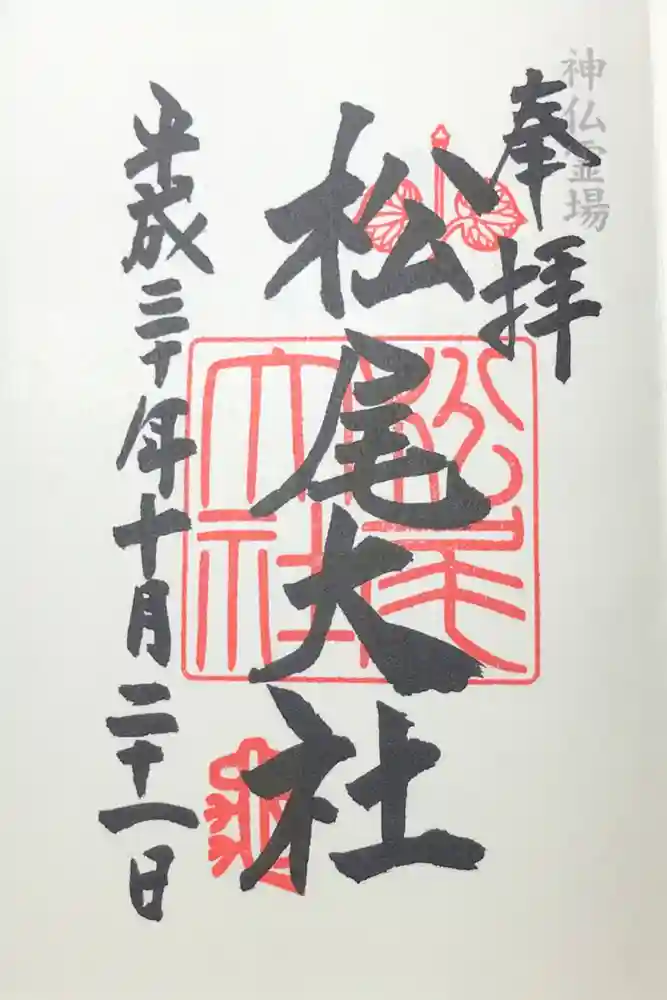 神仏霊場
奉拝
松尾大社
松尾大社
平成三十年十月二十一日